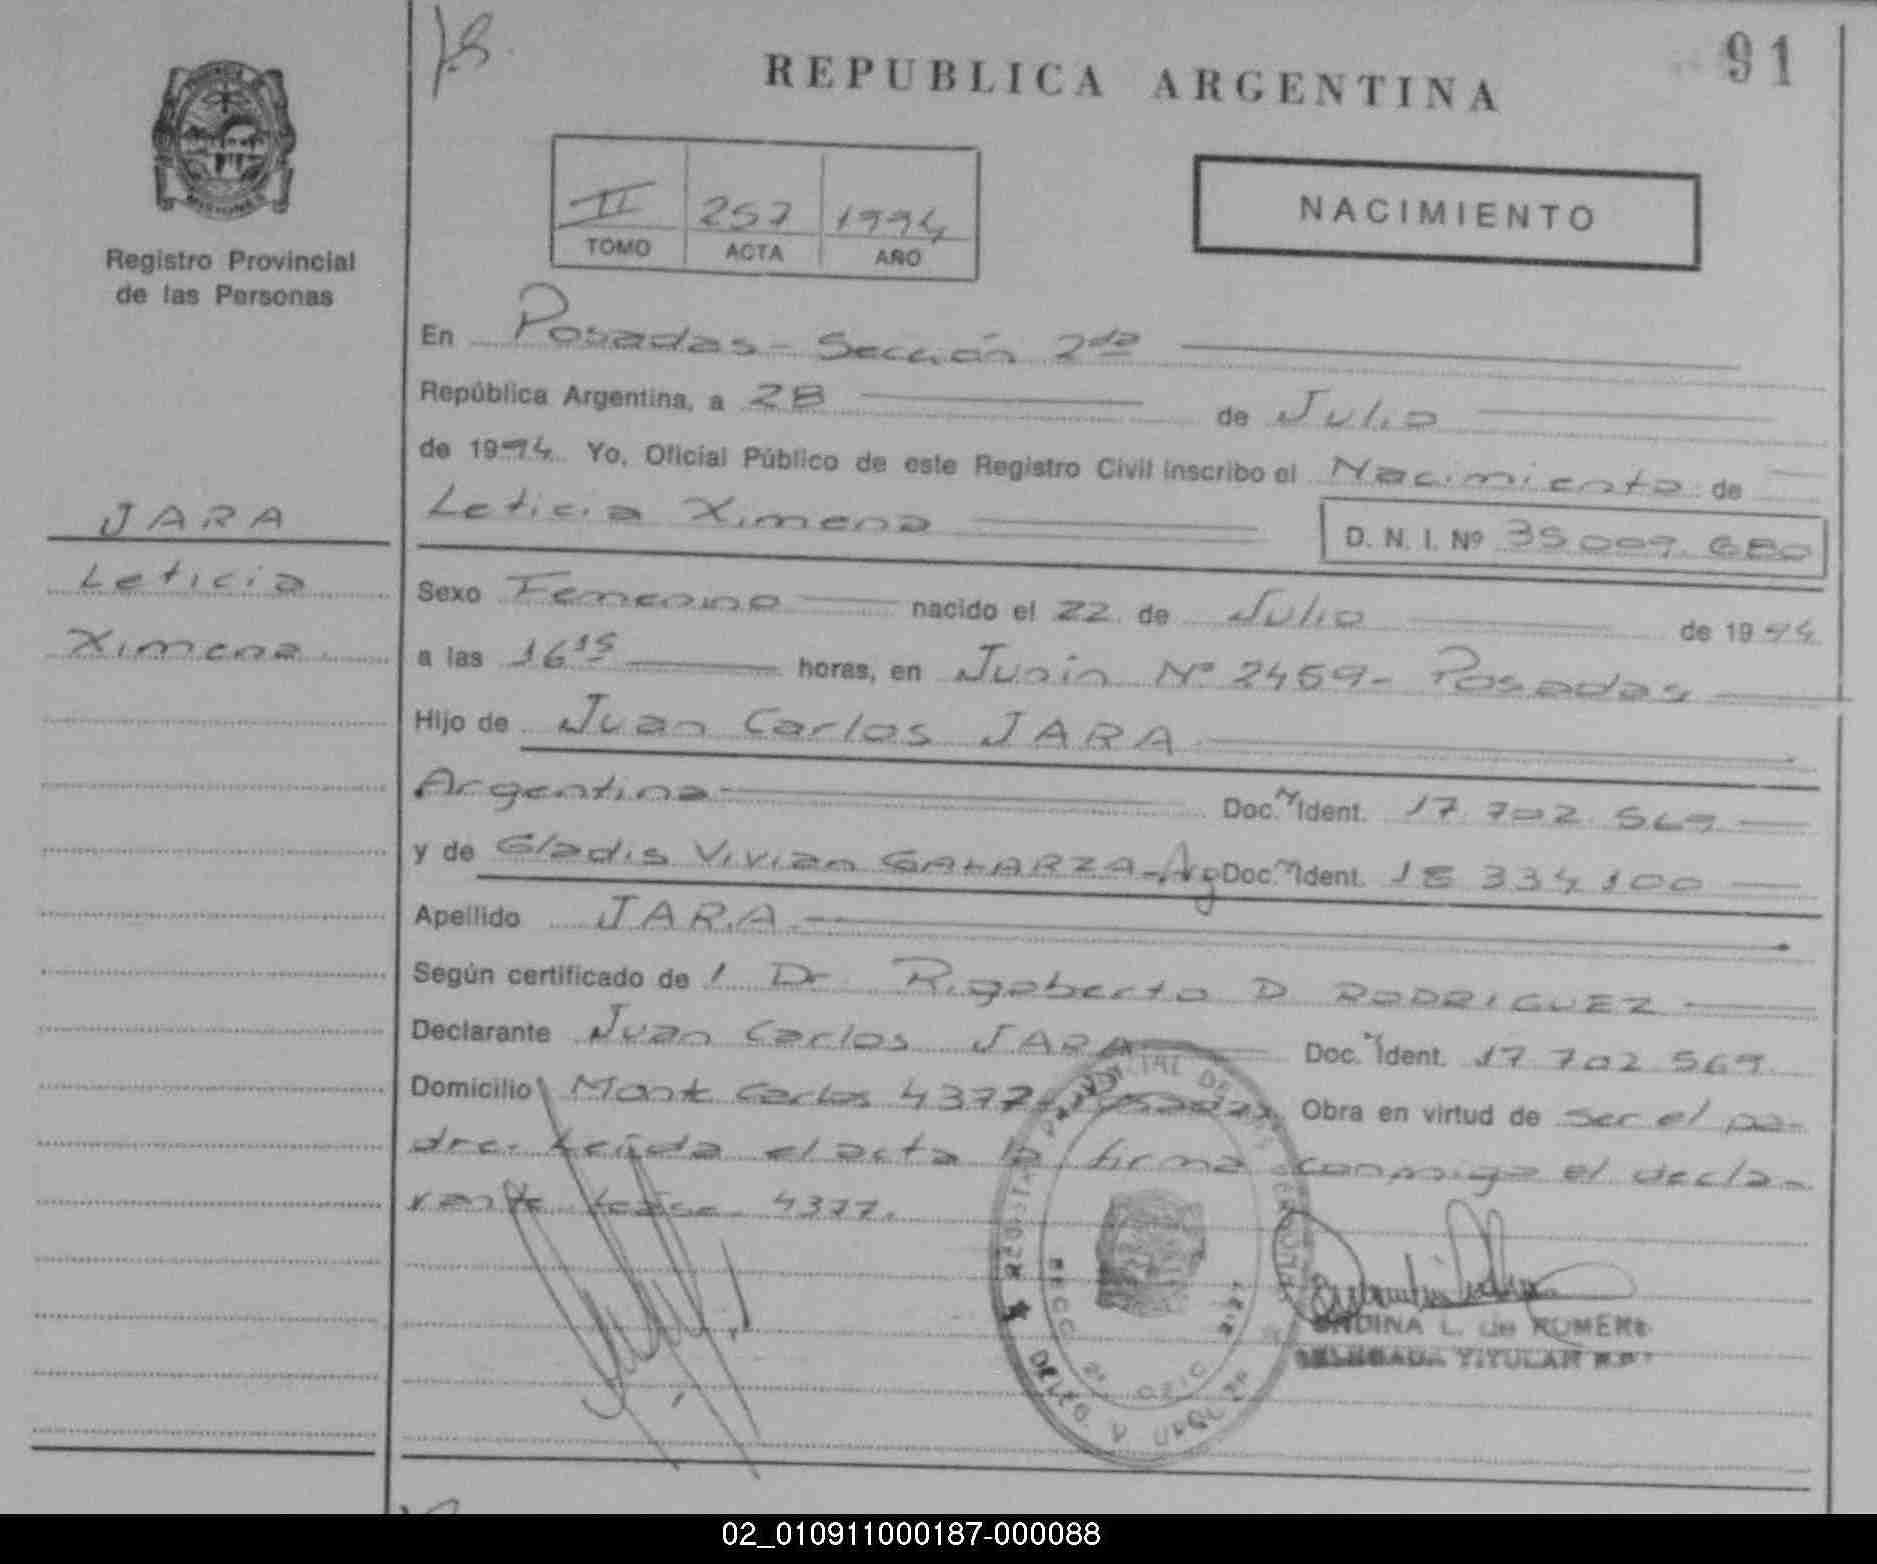 91
REPUBLICA ARGENTINA
MISIONES
Registro Provincial
de las Personas
II 257 1994
TOMO ACTA AÑO
NACIMIENTO
En Posadas - Sección 2da
República Argentina, a 28 de Julio
de 1994. Yo, Oficial Público de este Registro Civil inscribo el Nacimiento de
Leticia Ximena D. N. I. Nº 35 009 680
JARA
Leticia
Ximena
Sexo Femenino nacido el 22 de Julio de 1994
a las 16 15 horas, en Junin Nº 2459 - Posadas
Hijo de Juan Carlos JARA
Argentina Doc. Ident. 17.702.569
y de Gladis Vivian GALARZA - Arg Doc. Ident. 18 334 100
Apellido JARA
Según certificado de l Dr. Rigoberto D. RODRIGUEZ
Declarante Juan Carlos JARA Doc. Ident. 17 702 569
Domicilio Mont Carlos 4377 Posadas Obra en virtud de ser el pa-
dre. Leida el acta la firma conmigo el decla-
rante. Lease 4377.
REGISTRO PROVINCIAL DE LAS PERSONAS
SECC. 2ª
DELEG.
L. de ROMERO
DELEGADA TITULAR R.P.
02_010911000187-000088